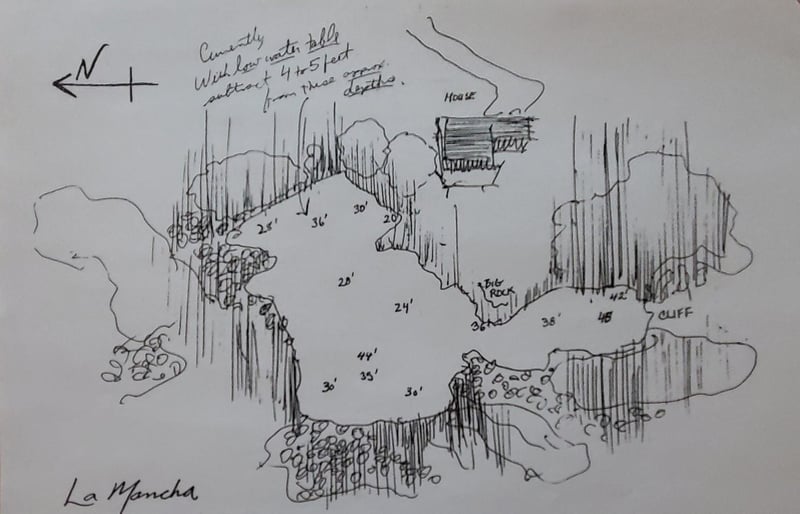 Currently
With low water table
subtract 4 to 5 feet
from these approx.
depths.
N
HOUSE
30'
36'
20'
28'
BIG
ROCK
42'
24'
CLIFF
38'
36'
44'
35'
30'
30'
La Mancha